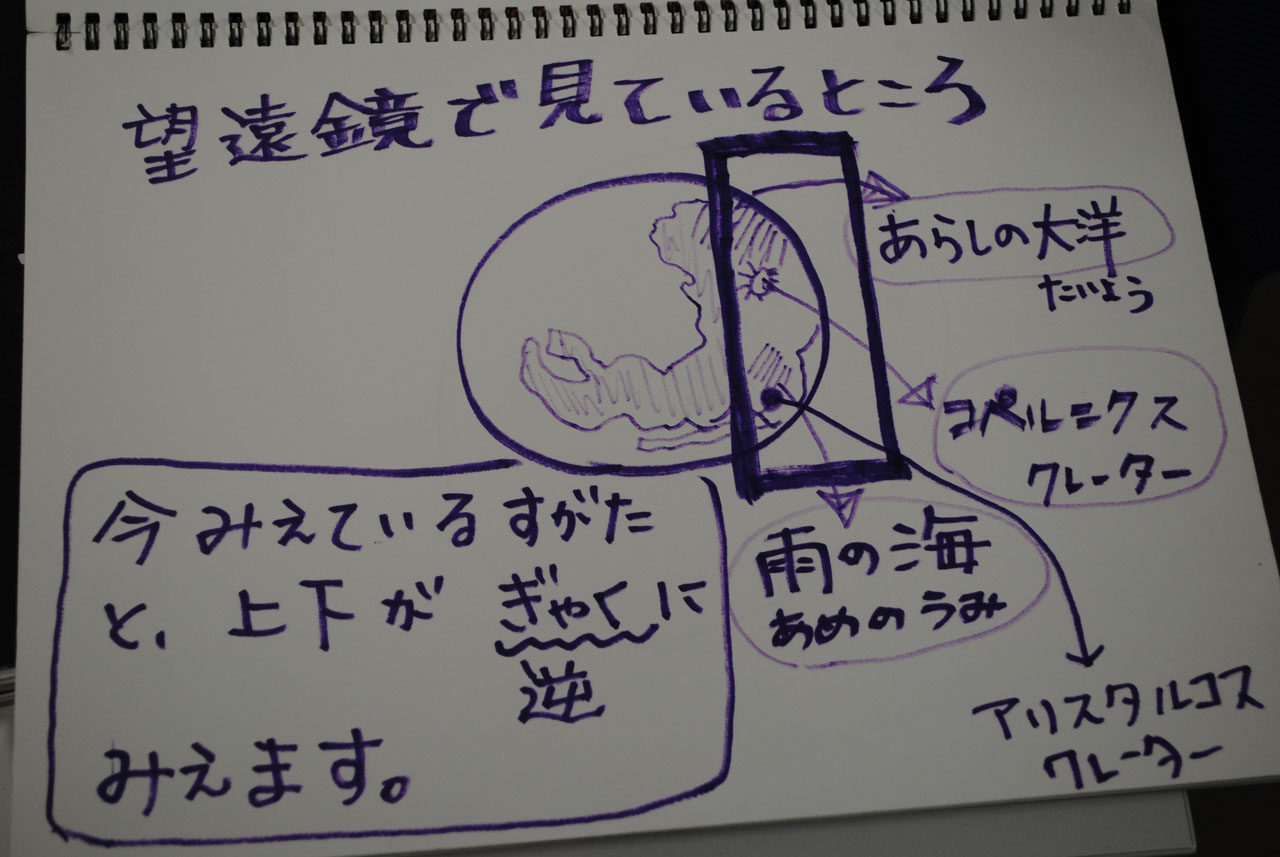 望遠鏡で見ているところ
あらしの大洋
たいよう
コペルニクス
クレーター
雨の海
あめのうみ
アリスタルコス
クレーター
今みえているすがた
と、上下がぎゃくに
逆
みえます。